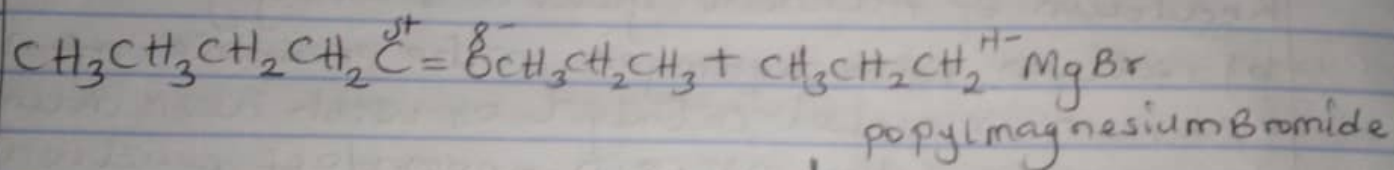 CH₃CH₃CH₂CH₂C^{δ+} = O^{δ-}CH₃CH₂CH₃ + CH₃CH₂CH₂^{H-}MgBr
popylmagnesiumBromide